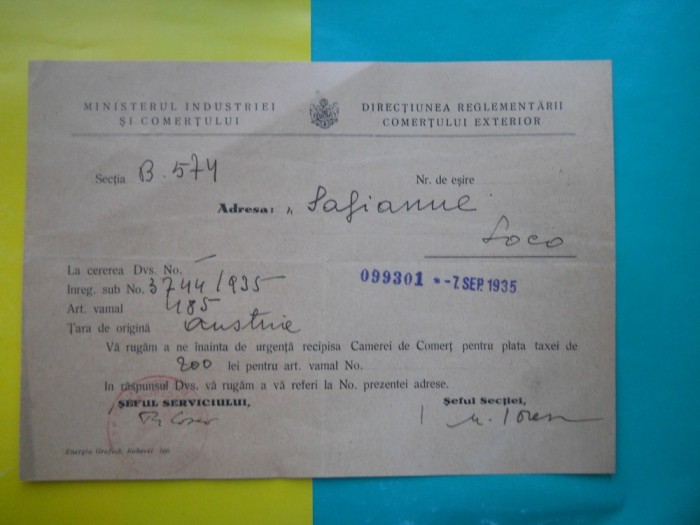 MINISTERUL INDUSTRIEI
ȘI COMERȚULUI
DIRECȚIUNEA REGLEMENTĂRII
COMERȚULUI EXTERIOR
Secția B. 574
Nr. de eșire
Adresa:
Loco
La cererea Dvs. No.
Inreg. sub No. 3744/935
099301 * -7 SEP. 1935
Art. vamal 485
Țara de origină Austrie
Vă rugăm a ne înainta de urgență recipisa Camerei de Comerț pentru plata taxei de
200 lei pentru art. vamal No.
In răspunsul Dvs. vă rugăm a vă referi la No. prezentei adrese.
ȘEFUL SERVICIULUI,
Șeful Secției,